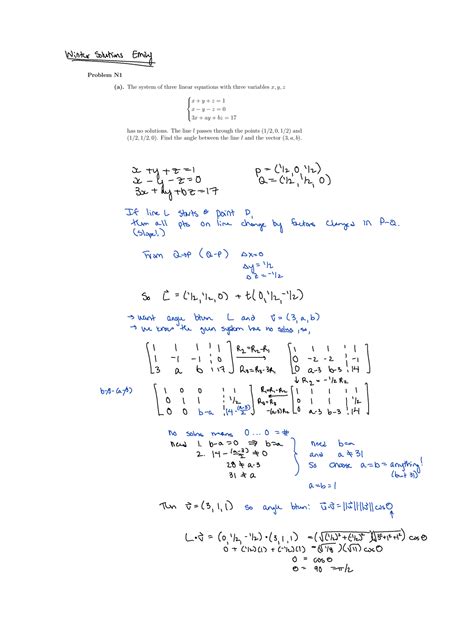 Winter Solutions Emily
Problem N1
(a). The system of three linear equations with three variables x, y, z
x + y + z = 1
x − y − z = 0
3x + ay + bz = 17
has no solutions. The line l passes through the points (1/2, 0, 1/2) and
(1/2, 1/2, 0). Find the angle between the line l and the vector (3, a, b).
x + y + z = 1    P = (1/2, 0, 1/2)
x - y - z = 0    Q = (1/2, 1/2, 0)
3x + ay + bz = 17
If line L starts @ point P,
then all pts on line change by factors changed in P→Q.
(slope!)
From Q→P (Q-P) Δx=0
Δy = 1/2
Δz = -1/2
So L = (1/2, 1/2, 0) + t(0, 1/2, -1/2)
→ want angle btwn L and v = (3, a, b)
→ we know the given system has no solns, so,
1 1 1 | 1   R2=R2-R1   1 1 1 | 1
1 -1 -1 | 0      0 -2 -2 | -1
3 a b | 17   R3=R3-3R1   0 a-3 b-3 | 14
↓ R2 = -1/2 R2
b-3-(a-3)   1 0 0 | 1/2   R1=R1-R2   1 1 1 | 1
0 1 1 | 1/2      0 1 1 | 1/2
0 0 b-a | 14-(a-3)/2   -(a-3)R2   0 a-3 b-3 | 14
no solns means 0 ... 0 = #
need 1. b-a=0 ⇒ b=a    need b=a
2. 14 - (a-3)/2 ≠ 0    and a ≠ 31
28 ≠ a-3    So choose a=b= anything!
31 ≠ a    (but 31)
a=b=1
Then v = (3, 1, 1) so angle btwn: u·v = ||u|| ||v|| cosθ
L·v = (0, 1/2, -1/2)·(3, 1, 1) = (√(1/2)²+(1/2)²)(√3²+1²+1²) cosθ
0 + (1/2)(1) + (-1/2)(1) = (√1/8)(√11) cosθ
0 = cosθ
θ = 90 = π/2